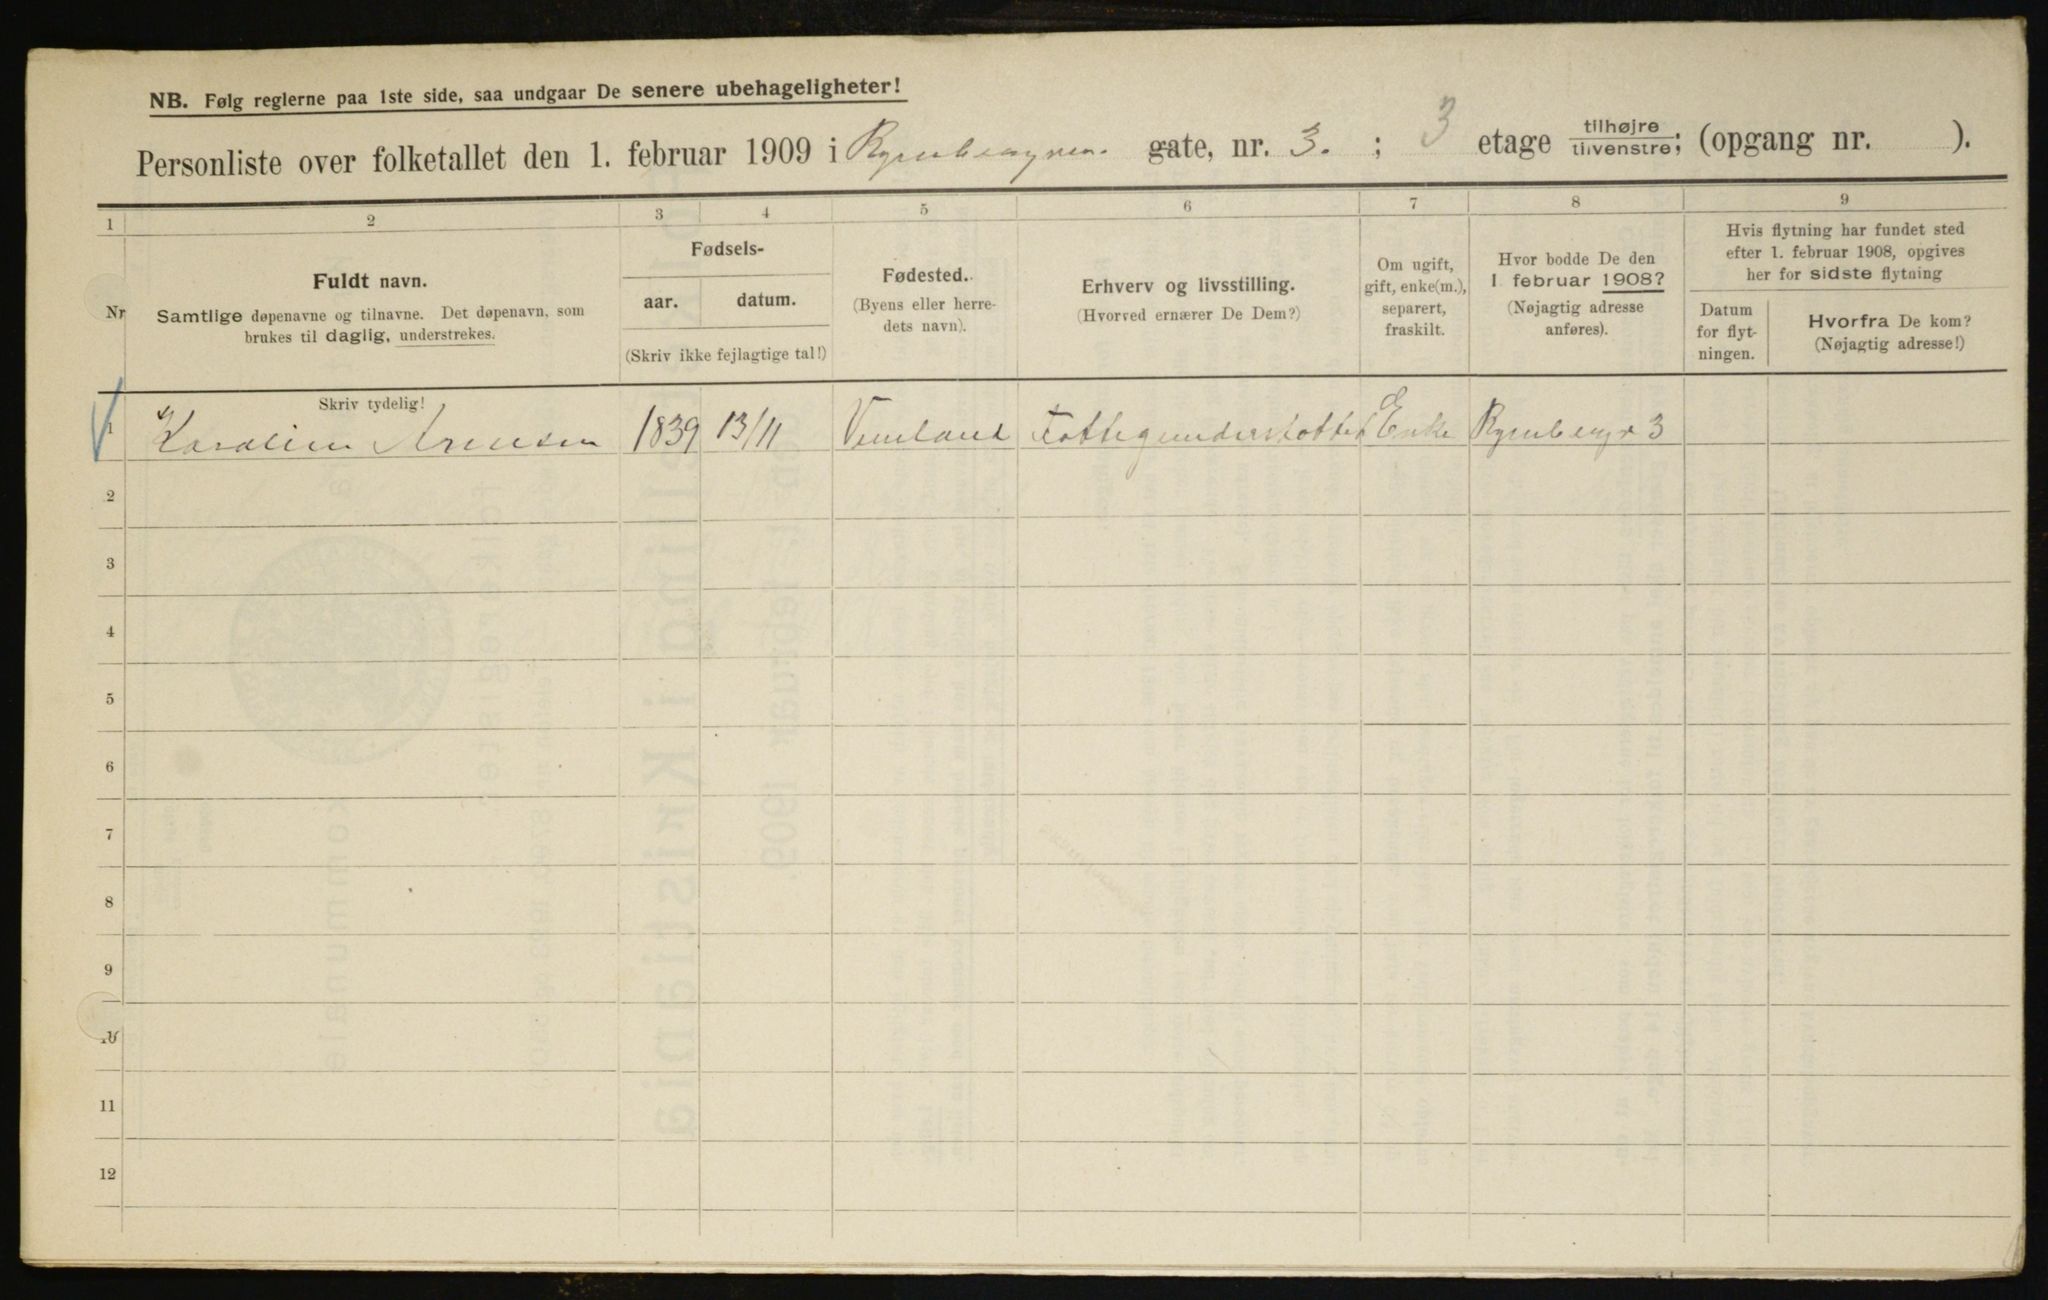 NB. Følg reglerne paa 1ste side, saa undgaar De senere ubehageligheter!
Personliste over folketallet den 1. februar 1909 i gate, nr. 3. ; 3 etage tilhøjre tilvenstre; (opgang nr. ).
1 2 3 4 5 6 7 8 9
Nr
Fuldt navn.
Samtlige døpenavne og tilnavne. Det døpenavn, som
brukes til daglig, understrekes.
Fødsels-
aar. datum.
(Skriv ikke fejlagtige tal!)
Fødested.
(Byens eller herre-
dets navn).
Erhverv og livsstilling.
(Hvorved ernærer De Dem?)
Om ugift,
gift, enke(m.),
separert,
fraskilt.
Hvor bodde De den
1 februar 1908?
(Nøjagtig adresse
anføres).
Hvis flytning har fundet sted
efter 1. februar 1908, opgives
her for sidste flytning
Datum
for flyt-
ningen.
Hvorfra De kom?
(Nøjagtig adresse!)
Skriv tydelig!
1 Karoline Arnesen 1839 13/11 Fattigunderstøttet Enke 3
2
3
4
5
6
7
8
9
10
11
12